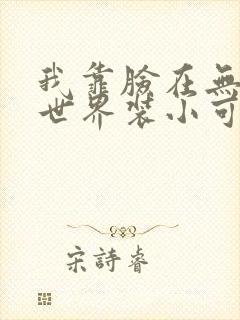 我靠臉在無
世界裝小可
宋詩睿